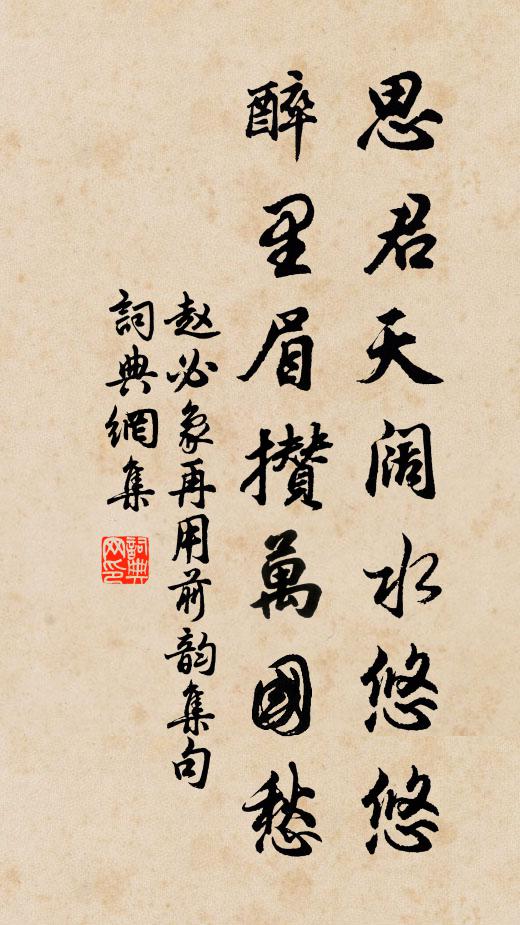 思君天阔水悠悠
醉里眉攢萬國愁
赵必象再用前韵集句
詞典網集
詞典網印